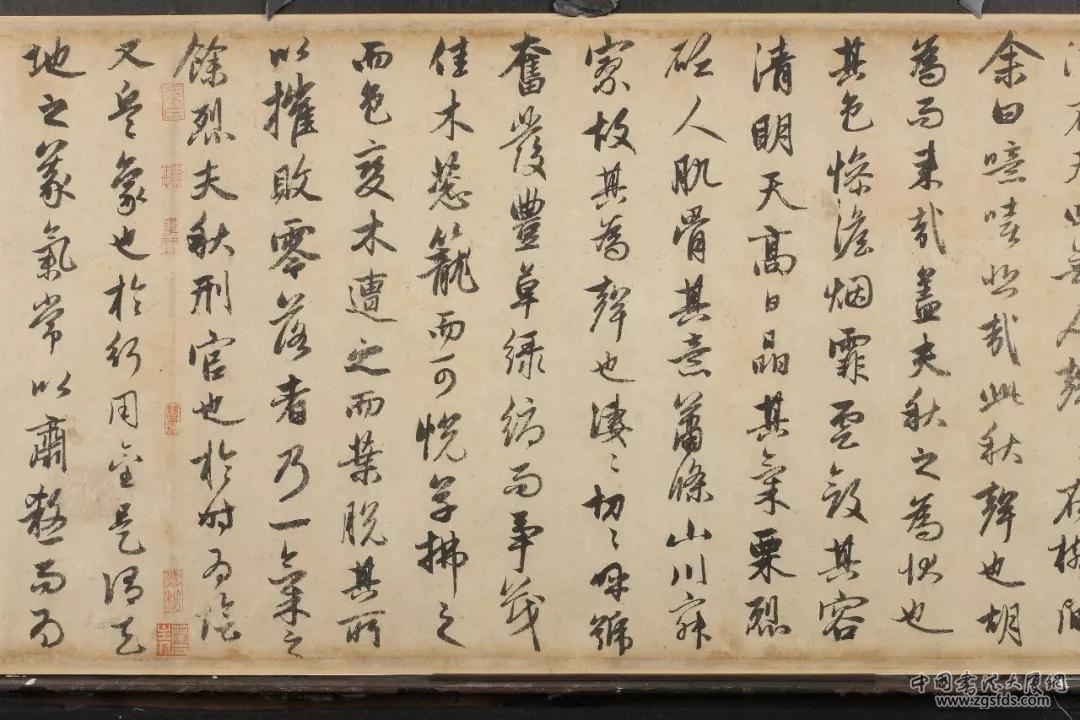 在天無人聲在樹間
余曰噫嘻悲哉此秋聲也胡
為而来哉蓋夫秋之為狀也
其色慘澹烟霏雲斂其容
清明天高日晶其氣栗烈
砭人肌骨其意蕭條山川寂
寥故其為聲也凄〻切〻呼號
奮發豐草綠縟而爭茂
佳木葱籠而可悅草拂之
而色變木遭之而葉脫其所
以摧敗零落者乃一氣之
餘烈夫秋刑官也於時為陰
又兵象也於行用金是謂天
地之義氣常以肅殺而為
中国書法大廈網
www.zgsfds.com